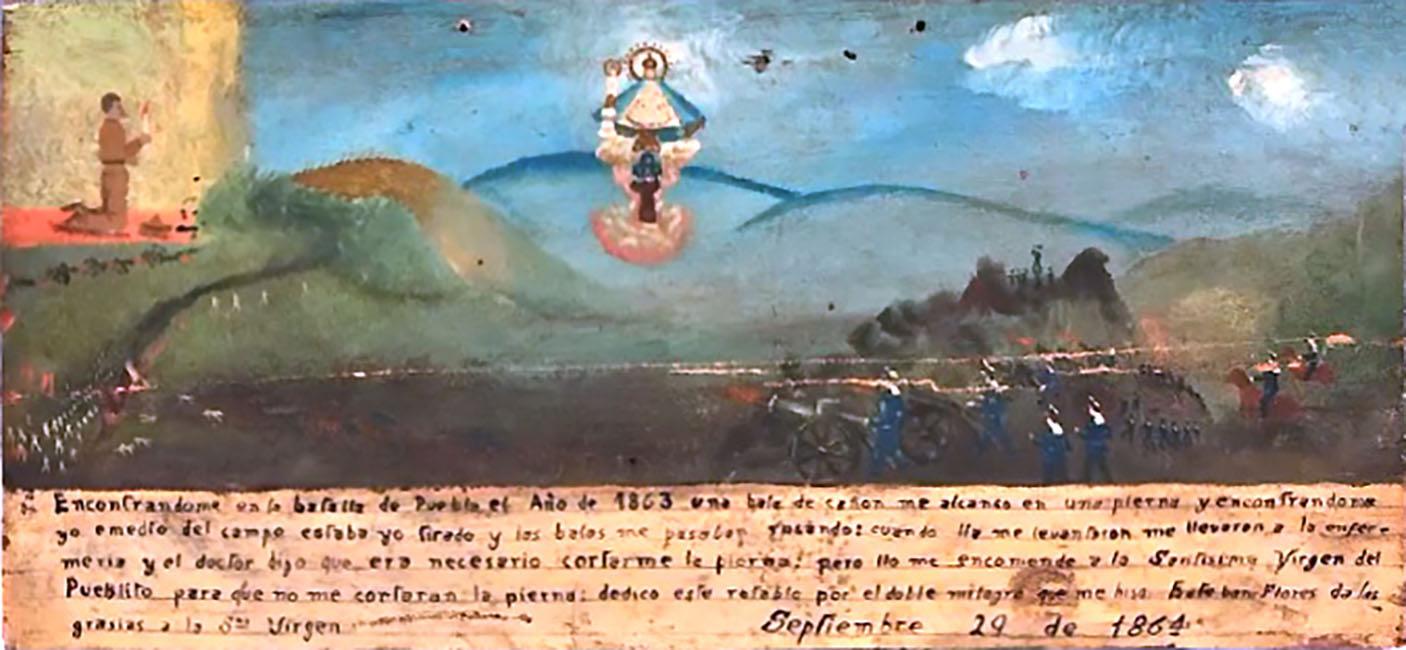 Encontrandome en la batalla de Puebla el Año de 1863 una bala de cañon me alcanso en una pierna y encontrandome
yo emedio del campo estaba yo tirado y las balas me pasaban rosando: cuando lla me levantaron me llevaron a la enfer-
meria y el doctor dijo que era necesario cortarme la pierna: pero llo me encomende a la Santisima Virgen del
Pueblito para que no me cortaran la pierna: dedico este retablo por el doble milagro que me hiso. Esteban Flores da las
grasias a la Sma Virgen
Septiembre 29 de 1864